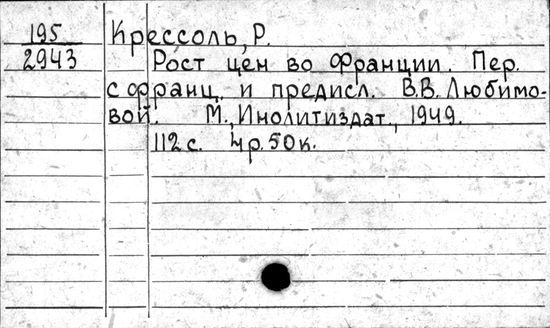 195 Крессоль, Р.
2943 Рост цен во Франции. Пер.
с франц. и предисл. В.В. Любимо-
вой. М., Инолитиздат, 1949.
112 с. 4р. 50к.